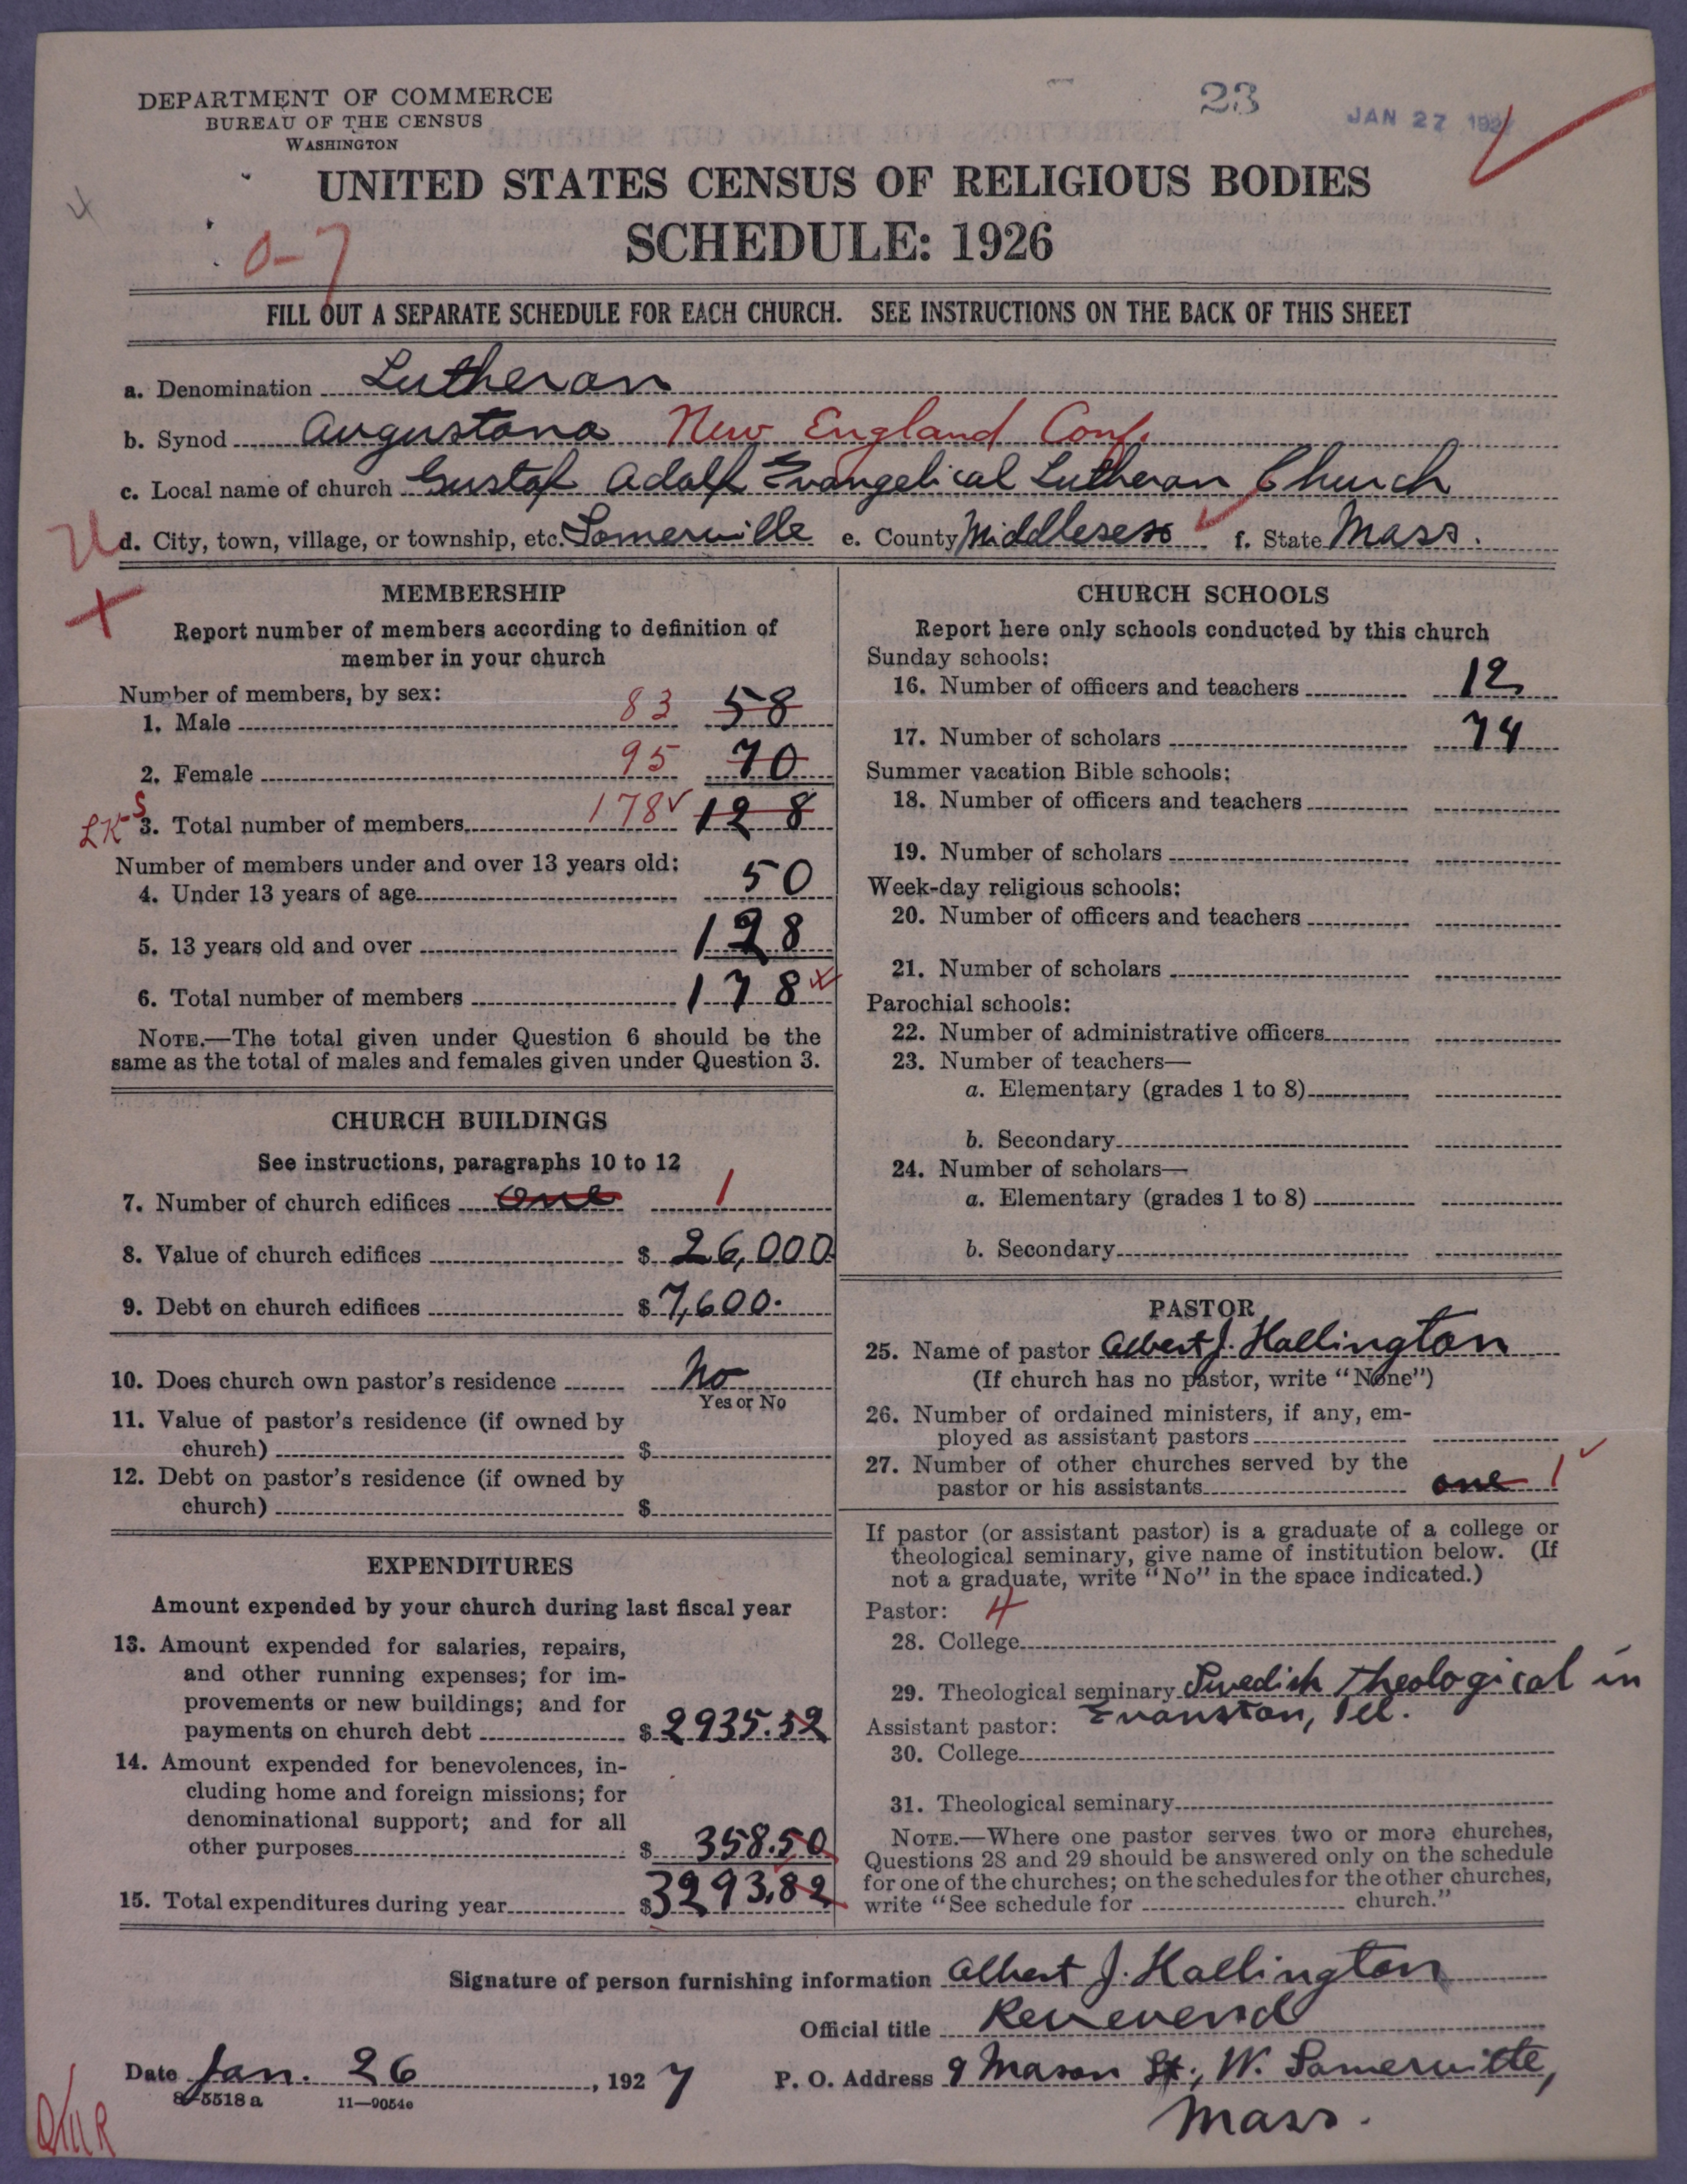 23
JAN 27 1927
DEPARTMENT OF COMMERCE
BUREAU OF THE CENSUS
WASHINGTON
4
UNITED STATES CENSUS OF RELIGIOUS BODIES
SCHEDULE: 1926
0-7
FILL OUT A SEPARATE SCHEDULE FOR EACH CHURCH. SEE INSTRUCTIONS ON THE BACK OF THIS SHEET
a. Denomination Lutheran
b. Synod Augustana New England Conf.
c. Local name of church Gustaf Adolf Evangelical Lutheran Church
d. City, town, village, or township, etc. Somerville e. County Middlesex f. State Mass.
MEMBERSHIP
Report number of members according to definition of
member in your church
Number of members, by sex:
1. Male 83 58
2. Female 95 70
LK S 3. Total number of members 178 128
Number of members under and over 13 years old:
4. Under 13 years of age 50
5. 13 years old and over 128
6. Total number of members 178
NOTE.—The total given under Question 6 should be the
same as the total of males and females given under Question 3.
CHURCH BUILDINGS
See instructions, paragraphs 10 to 12
7. Number of church edifices one 1
8. Value of church edifices $ 26,000
9. Debt on church edifices $ 7,600.
10. Does church own pastor's residence No
Yes or No
11. Value of pastor's residence (if owned by
church) $
12. Debt on pastor's residence (if owned by
church) $
EXPENDITURES
Amount expended by your church during last fiscal year
13. Amount expended for salaries, repairs,
and other running expenses; for im-
provements or new buildings; and for
payments on church debt $ 2935.32
14. Amount expended for benevolences, in-
cluding home and foreign missions; for
denominational support; and for all
other purposes $ 358.50
15. Total expenditures during year $ 3293.82
CHURCH SCHOOLS
Report here only schools conducted by this church
Sunday schools:
16. Number of officers and teachers 12
17. Number of scholars 74
Summer vacation Bible schools:
18. Number of officers and teachers
19. Number of scholars
Week-day religious schools:
20. Number of officers and teachers
21. Number of scholars
Parochial schools:
22. Number of administrative officers
23. Number of teachers—
a. Elementary (grades 1 to 8)
b. Secondary
24. Number of scholars—
a. Elementary (grades 1 to 8)
b. Secondary
PASTOR
25. Name of pastor Albert J. Hallington
(If church has no pastor, write "None")
26. Number of ordained ministers, if any, em-
ployed as assistant pastors
27. Number of other churches served by the
pastor or his assistants one 1
If pastor (or assistant pastor) is a graduate of a college or
theological seminary, give name of institution below. (If
not a graduate, write "No" in the space indicated.)
Pastor: 4
28. College
29. Theological seminary Swedish Theological in
Evanston, Ill.
Assistant pastor:
30. College
31. Theological seminary
NOTE.—Where one pastor serves two or more churches,
Questions 28 and 29 should be answered only on the schedule
for one of the churches; on the schedules for the other churches,
write "See schedule for church."
Signature of person furnishing information Albert J. Hallington
Official title Reverend
Date Jan. 26, 1927 P. O. Address 9 Mason St., W. Somerville,
Mass.
8-5518a 11-9054e